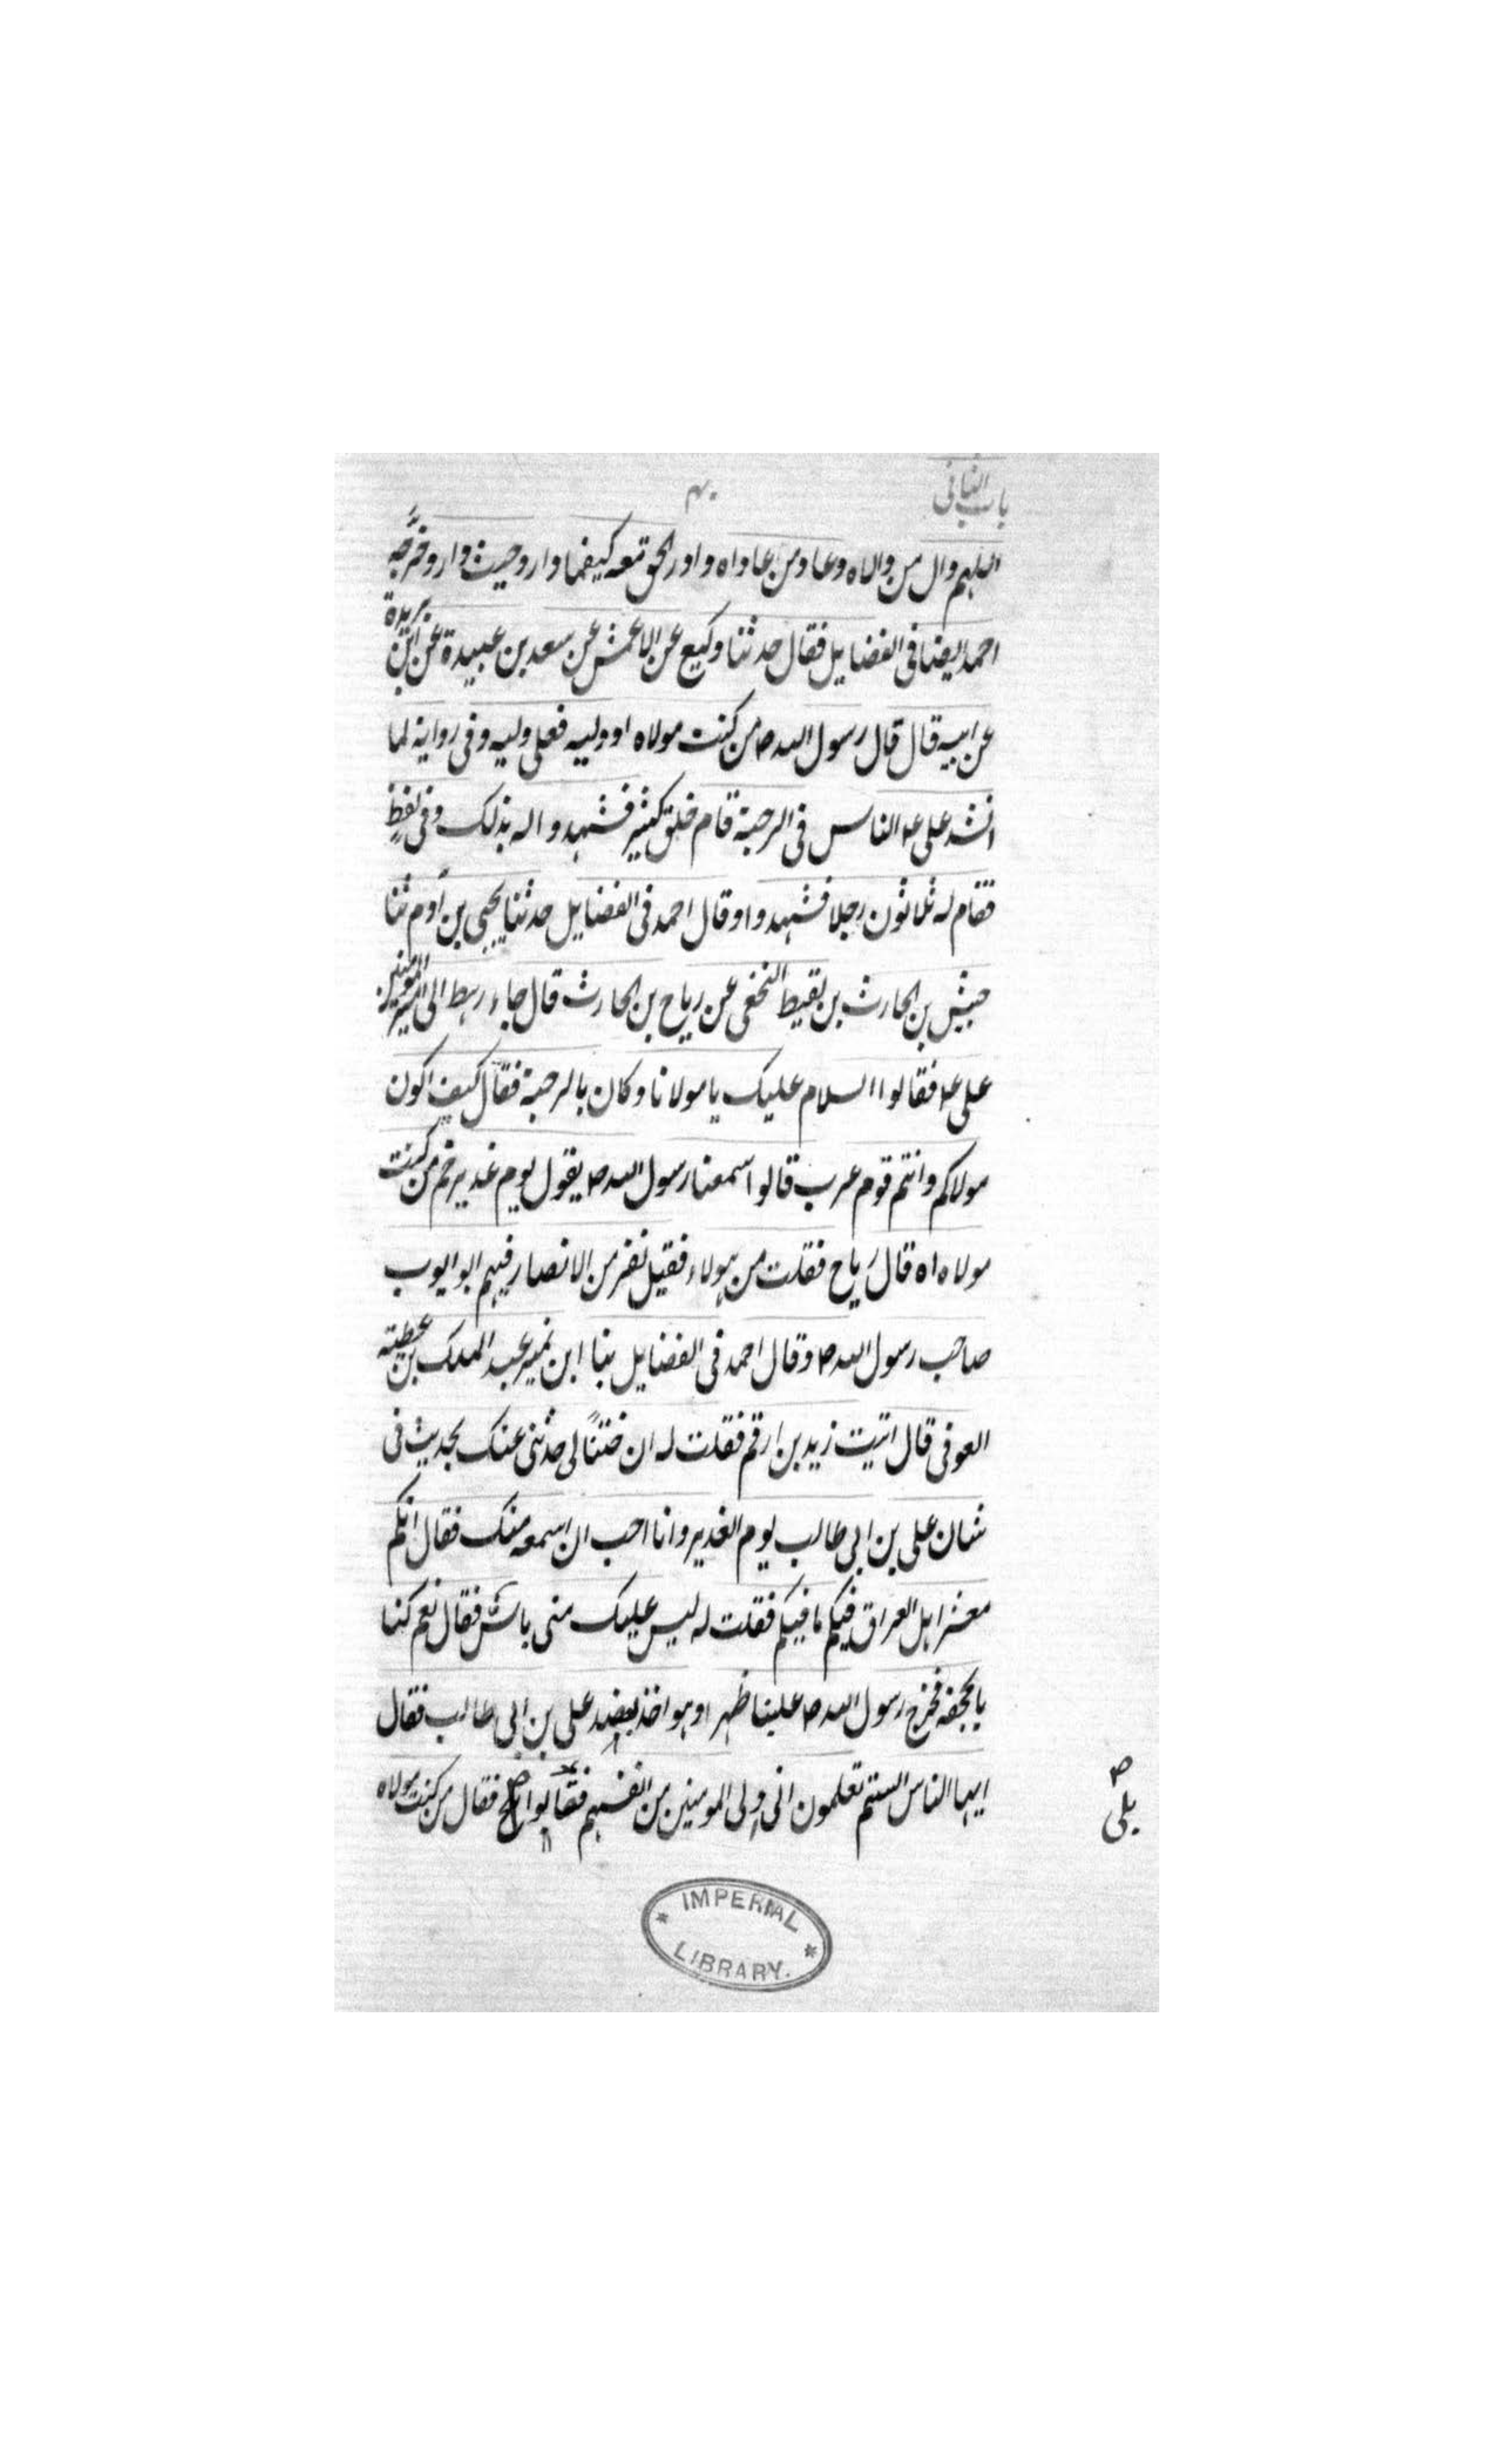 باب الثانی
۴۰
اللهم وال من والاه وعاد من عاداه وادر الحق معه کیفما دار وحیث دار وخرّجه
احمد ایضا فی الفضایل فقال حدثنا وکیع عن الاعمش عن سعد بن عبیدة عن ابن بریدة
عن ابیه قال قال رسول الله ص من کنت مولاه او ولیه فعلی ولیه وفی روایة لما
انشد علی ع الناس فی الرحبة قام خلق کثیر فشهدوا له بذلک وفی لفظ
فقام له ثلاثون رجلا فشهدوا وقال احمد فی الفضایل حدثنا یحیی بن آدم ثنا
حبیش بن الحارث بن لقیط النخعی عن ریاح بن الحارث قال جاء رهط الی امیر المومنین
علی ع فقالوا السلام علیک یا مولانا وکان بالرحبة فقال کیف اکون
مولاکم وانتم قوم عرب قالوا سمعنا رسول الله ص یقول یوم غدیر خم من کنت
مولاه اه قال ریاح فقلت من هولاء فقیل نفر من الانصار فیهم ابو ایوب
صاحب رسول الله ص وقال احمد فی الفضایل ثنا ابن نمیر عبد الملک بن عطیته
العوفی قال اتیت زید بن ارقم فقلت له ان ختنًا لی حدثنی عنک بحدیث فی
شان علی بن ابی طالب یوم الغدیر وانا احب ان اسمعه منک فقال انکم
معشر اهل العراق فیکم ما فیکم فقلت له لیس علیک منی باش فقال نعم کنا
بالجحفه فخرج رسول الله ص علینا ظهرا وهو اخذ بعضد علی بن ابی طالب فقال
ایها الناس الستم تعلمون انی اولی المومنین من انفسهم فقالوا فقال من کنت مولاه
بلی ص
IMPERIAL
LIBRARY.